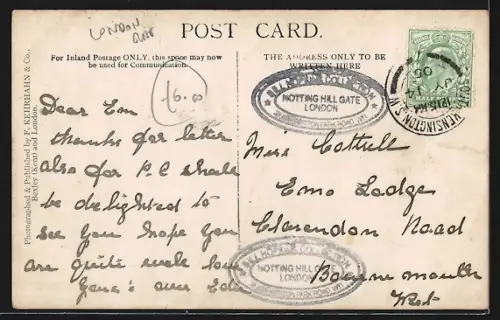 LONDON
POST CARD.
For Inland Postage ONLY, this space may now
be used for Communication.
THE ADDRESS ONLY TO BE
WRITTEN HERE
Photographed & Published by F. KEHRHAHN & Co.,
Bexley (Kent) and London.
6.00
Dear Em
thanks for letter
also for P.C shall
be delighted to
see you hope you
are quite well love
Yours ever Ede
Miss Cottrell
Emo Lodge
Clarendon Road
Bournemouth
West
NOTTING HILL GATE
LONDON
NOTTING HILL GATE
LONDON
KENSINGTON S.W
05